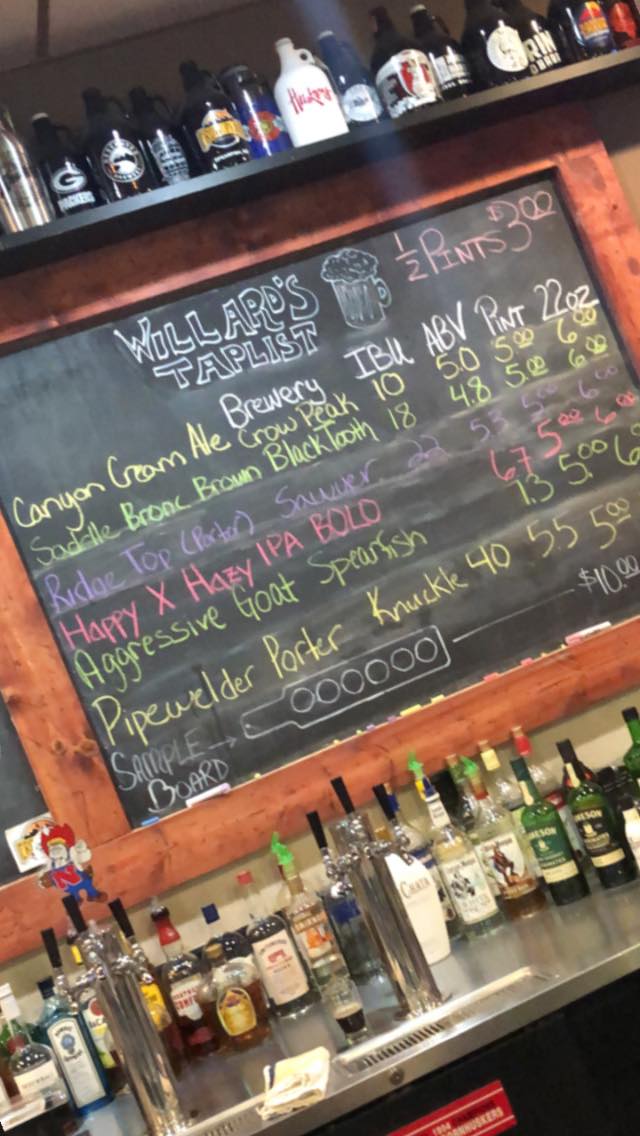 Huskers
PACKERS
½ PINTS $3.00
WILLARD'S
TAPLIST
Brewery IBU ABV PINT 22oz
Canyon Cream Ale Crow Peak 10 5.0 5.00 6.00
Saddle Bronc Brown Black Tooth 18 4.8 5.00 6.00
Ridge Top (Porter) Sawyer 22 5.3 5.00 6.00
Happy X Hazy IPA BOLD 6.7 5.00 6.00
Aggressive Goat Spearfish 7.3 5.00 6.
Pipewelder Porter Knuckle 40 5.5 5.00
SAMPLE
BOARD
$10.00
N
CHATA
SMIRNOFF
JAMESON
JAMESON
BOMBAY
CORNHUSKERS